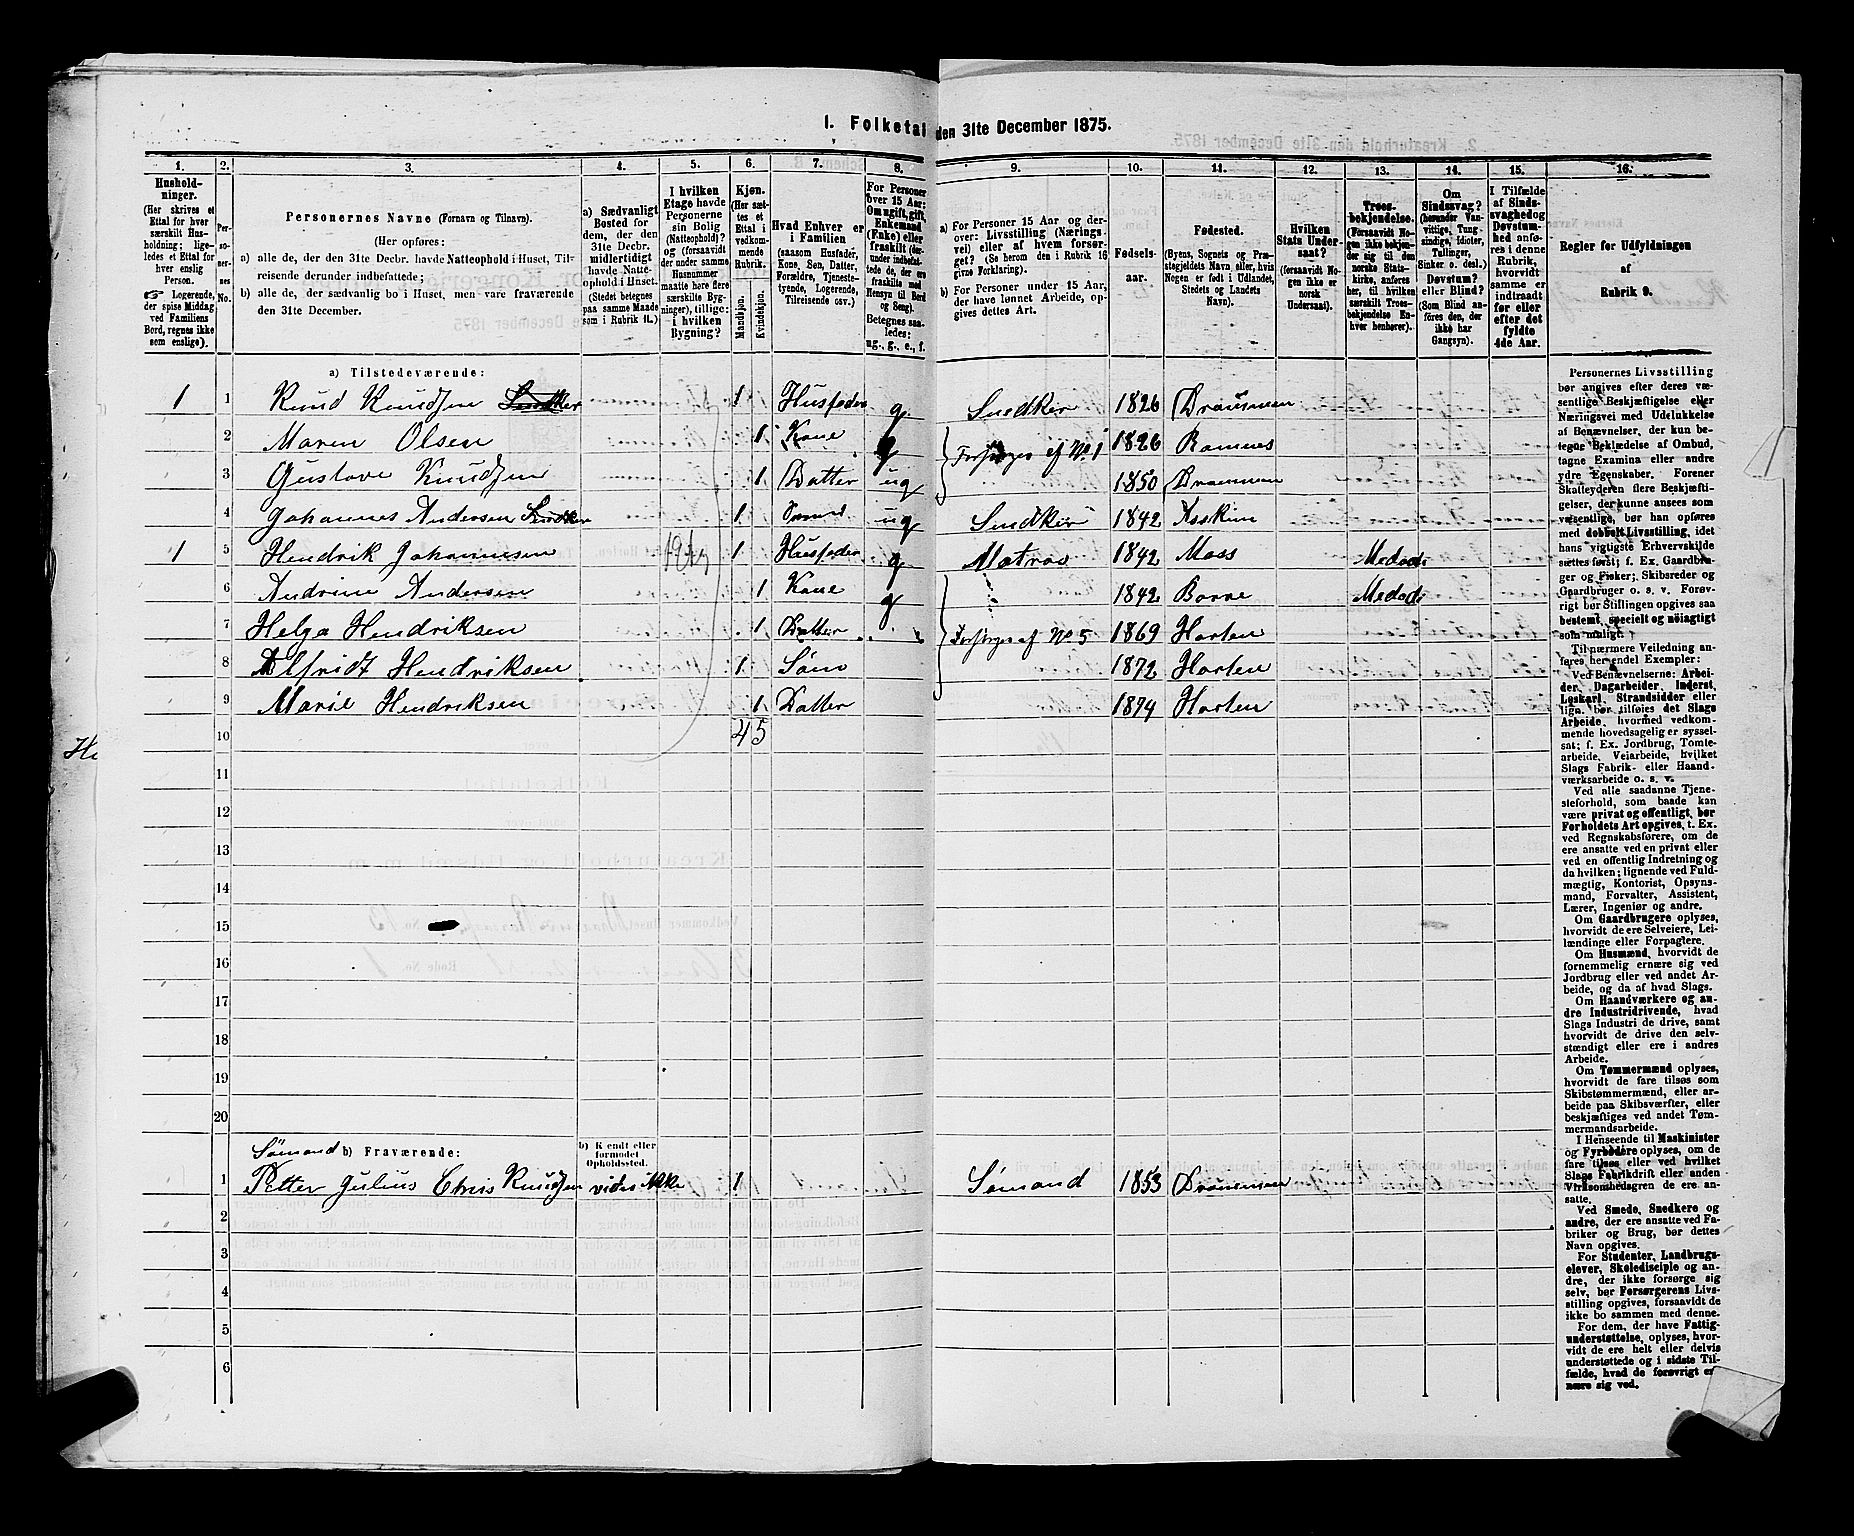 1. Folketal den 31te December 1875.
1. 2. 3. 4. 5. 6. 7. 8. 9. 10. 11. 12. 13. 14. 15. 16.
Hushold-
ninger.
(Her skrives et
Ettal for hver
særskilt Hus-
holdning; lige-
ledes et Ettal for
hver enslig
Person.
☞ Logerende,
der spise Middag
ved Familiens
Bord, regnes ikke
som enslige).
Per-
so-
ner-
nes
No.
Personernes Navne (Fornavn og Tilnavn).
(Her opføres:
a) alle de, der den 31te Decbr. havde Natteophold i Huset, Til-
reisende derunder indbefattede;
b) alle de, der sædvanlig bo i Huset, men vare fraværende
den 31te December.
a) Sædvanligt
Bosted for
dem, der den
31te Decbr.
midlertidigt
havde Natte-
ophold i Huset.
(Stedet betegnes
paa samme Maade
som i Rubrik 11.)
I hvilken
Etage havde
Personerne
sin Bolig
(Natteophold)?
(forsaavidt
der under samme
Husnummer
maatte høre flere
særskilte Byg-
ninger), tillige:
i hvilken
Bygning?
Kjøn.
(Her sæt-
tes et
Ettal i
vedkom-
mende
Rubrik.
Mandkjøn.
Kvindekjøn.
Hvad Enhver er
i Familien
(saasom Husfader,
Kone, Søn, Datter,
Forældre, Tjeneste-
tyende, Logerende,
Tilreisende osv.)
For Personer
over 15 Aar:
Om ugift, gift,
Enkemand
(Enke) eller
fraskilt (der-
under indbefat-
tede de, der ere
fraskilte med
Hensyn til Bord
og Seng).
Betegnes saa-
ledes:
ug., g., e., f.
a) For Personer 15 Aar og der-
over: Livsstilling (Nærings-
vei) eller af hvem forsør-
get? (Se herom den i Rubrik 16
givne Forklaring).
b) For Personer under 15 Aar,
der have lønnet Arbeide, op-
gives dettes Art.
Fødsels-
aar.
Fødested.
(Byens, Sognets og Præ-
stegjeldets Navn, eller, hvis
Nogen er født i Udlandet,
Stedets og Landets
Navn).
Hvilken
Stats Under-
saat?
(forsaavidt No-
gen ikke er
norsk
Undersaat).
Troes-
bekjendelse.
(Forsaavidt No-
gen ikke bekjen-
der sig til den
norske Stats-
kirke, anføres
her, til hvilken
særskilt Troes-
bekjendelse En-
hver henhører).
Om
Sindssvag?
(herunder Van-
vittige, Tung-
sindige, Idioter,
Tullinger,
Sinker o. desl.)
Døvstum?
eller Blind?
(Som Blind an-
føres den, der
ikke har
Gangsyn).
I Tilfælde
af Sinds-
svaghed og
Døvstum-
hed anfø-
res i denne
Rubrik,
hvorvidt
samme er
indtraadt
før eller
efter det
fyldte
4de Aar.
Regler for Udfyldningen
af
Rubrik 9.
a) Tilstedeværende:
1 1 Knud Knudsen Snedker 1 Husfader g Snedker 1826 Drammen
2 Maren Olsen 1 Kone g Forsørges af No. 1 1826 Ramnes
3 Gustave Knudsen 1 Datter ug 1850 Drammen
4 Johannes Andersen Snedker 1 ug Snedker 1842 Askim
1 5 Hendrik Johannesen 1 Husfader g Matros 1842 Moss Medod.
6 Andrine Andersen 1 Kone g 1842 Borre Medod.
7 Helga Hendriksen 1 Datter Forsørges af No. 5 1869 Horten
8 Alfridt Hendriksen 1 Søn 1872 Horten
9 Marie Hendriksen 1 Datter 1874 Horten
10 4 5
11
12
13
14
15
16
17
18
19
20
Sømand b) Fraværende: b) Kjendt eller
formodet
Opholdssted.
1 Petter Julius Chris Knudsen vides ikke 1 Sømand 1853 Drammen
2
3
4
5
6
Personernes Livsstilling
bør angives efter deres væ-
sentlige Beskjæftigelse eller
Næringsvei med Udelukkelse
af Benævnelser, der kun be-
tegne Beklædelse af Ombud,
tagne Examina eller andre
ydre Egenskaber. Forener
Skatteyderen flere Beskjæfti-
gelser, der kunne ansees som
væsentlige, bør han opføres
med dobbelt Livsstilling, idet
hans vigtigste Erhvervskilde
sættes først; f. Ex. Gaardbru-
ger og Fisker; Skibsreder og
Gaardbruger o. s. v. Forøv-
rigt bør Stillingen opgives saa
bestemt, specielt og nøiagtigt
som muligt.
Til nærmere Veiledning an-
føres her endel Exempler:
Ved Benævnelserne: Arbei-
der, Dagarbeider, Inderst,
Løskarl, Strandsidder eller
lign. bør tilføies det Slags
Arbeide, hvormed vedkom-
mende hovedsagelig er syssel-
sat; f. Ex. Jordbrug, Tomte-
arbeide, Veiarbeide, hvilket
Slags Fabrik- eller Haand-
værksarbeide o. s. v.
Ved alle saadanne Tjene-
steforhold, som baade kan
være privat og offentligt, bør
Forholdets Art opgives, f. Ex.
ved Regnskabsførere, om de
ere ansatte ved en privat eller
ved en offentlig Indretning og
da hvilken; lignende ved Fuld-
mægtig, Kontorist, Opsyns-
mand, Forvalter, Assistent,
Lærer, Ingeniør og andre.
Om Gaardbrugere oplyses,
hvorvidt de ere Selveiere, Lei-
lændinge eller Forpagtere.
Om Husmænd, hvorvidt de
fornemmelig ernære sig ved
Jordbrug eller ved andet Ar-
beide, og da af hvad Slags.
Om Haandværkere og an-
dre Industridrivende, hvad
Slags Industri de drive, samt
hvorvidt de drive den selv-
stændigt eller ere i andres
Arbeide.
Om Tømmermænd oplyses,
hvorvidt de fare tilsøs som
Skibstømmermænd, eller ar-
beide paa Skibsværfter, eller
beskjæftiges ved andet Tøm-
mermandsarbeide.
I Henseende til Maskinister
og Fyrbødere oplyses, om de
fare tilsøs eller ved hvilket
Slags Fabrikdrift eller anden
Virksomhedsgren de ere an-
satte.
Ved Smede, Snedkere og
andre, der ere ansatte ved Fa-
briker og Brug, bør dettes
Navn opgives.
For Studenter, Landbrugs-
elever, Skoledisciple og an-
dre, der ikke forsørge sig
selv, bør Forsørgerens Livs-
stilling opgives, forsaavidt de
ikke bo sammen med denne.
For dem, der have Fattig-
understøttelse, oplyses, hvor-
vidt de ere helt eller delvis
understøttede og i sidste Til-
fælde, hvad de forøvrigt er-
nære sig ved.